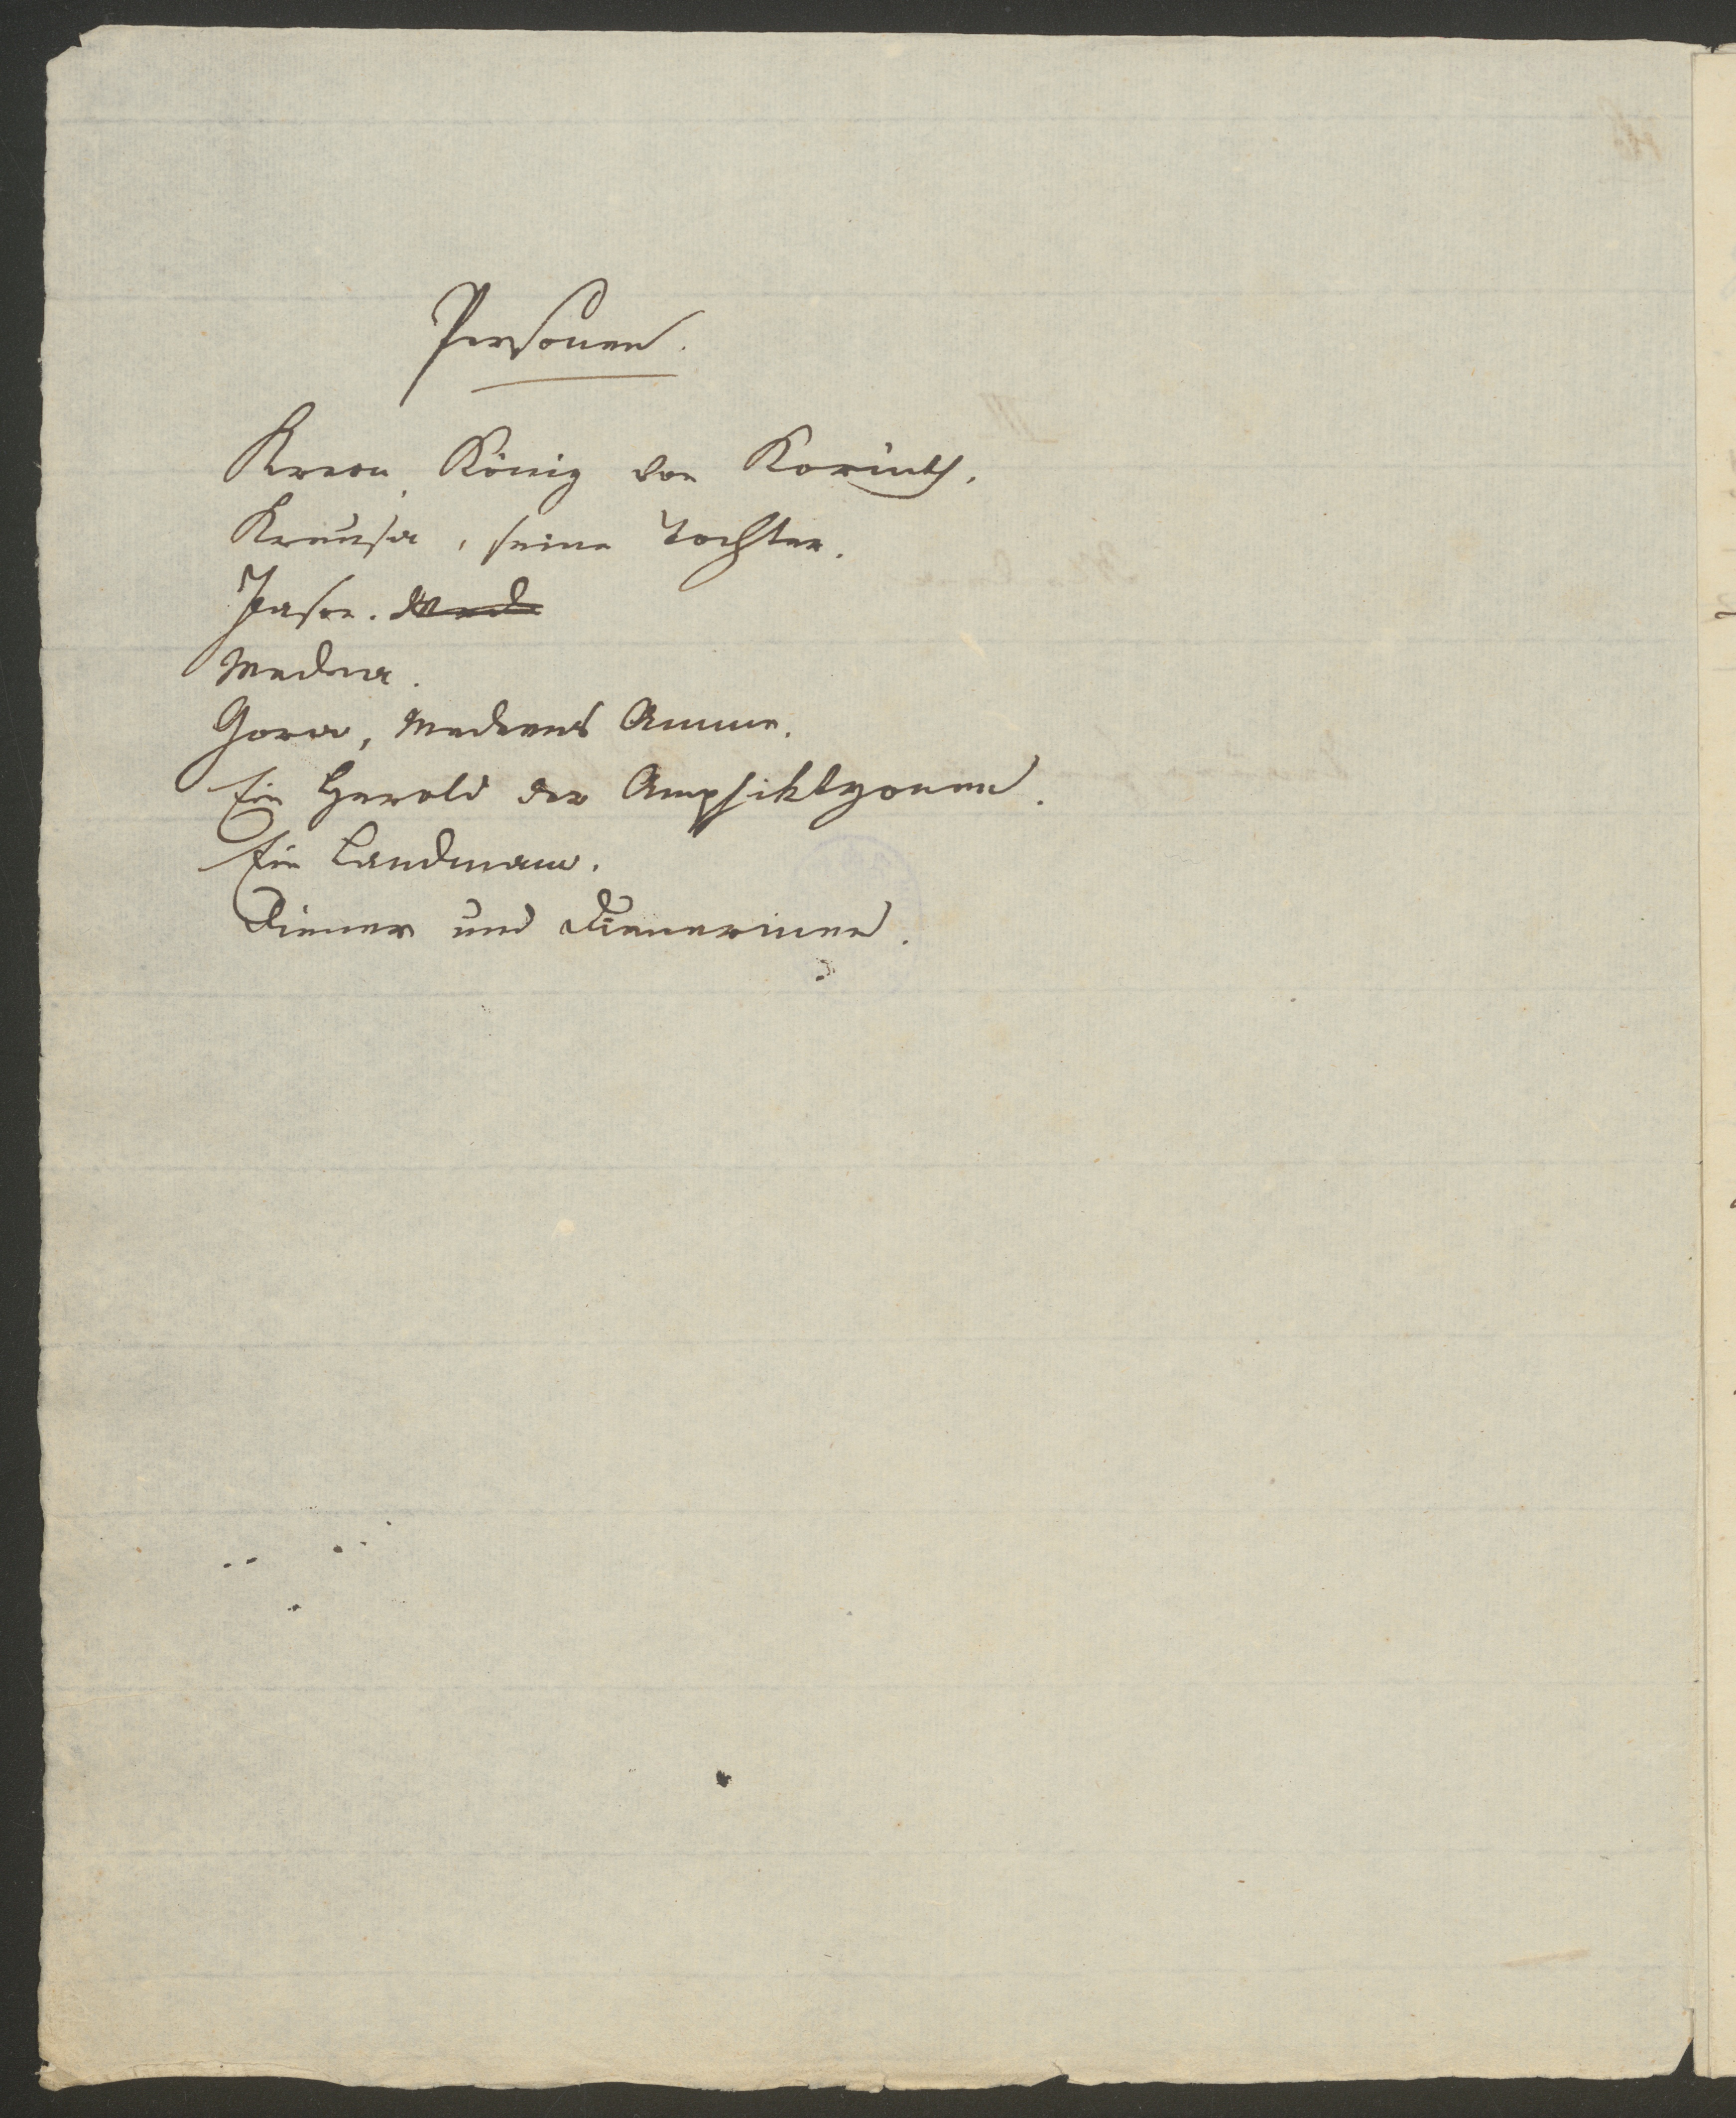 Personen.
Kreon, König von Korinth.
Kreusa, seine Tochter.
Jason. Med
Medea.
Gora, Medeens Amme.
Ein Herold der Amphiktyonen.
Ein Landmann.
Diener und Dienerinen.